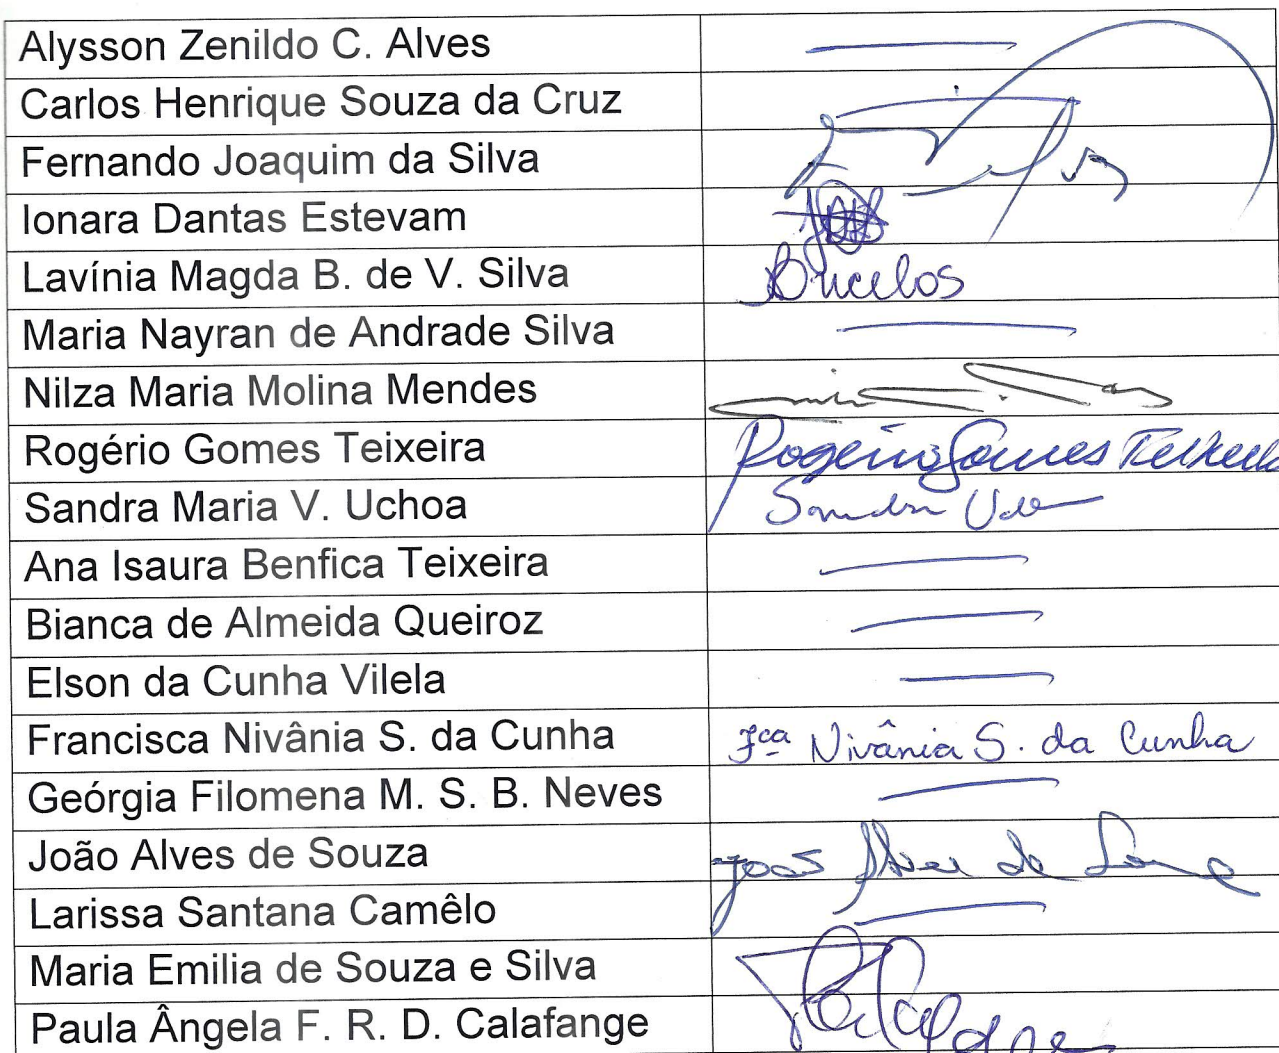 Alysson Zenildo C. Alves
Carlos Henrique Souza da Cruz
Fernando Joaquim da Silva
Ionara Dantas Estevam
Lavínia Magda B. de V. Silva
Maria Nayran de Andrade Silva
Nilza Maria Molina Mendes
Rogério Gomes Teixeira Rogério Gomes Teixeira
Sandra Maria V. Uchoa Sandra
Ana Isaura Benfica Teixeira
Bianca de Almeida Queiroz
Elson da Cunha Vilela
Francisca Nivânia S. da Cunha Fca Nivânia S. da Cunha
Geórgia Filomena M. S. B. Neves
João Alves de Souza João Alves de
Larissa Santana Camêlo
Maria Emilia de Souza e Silva
Paula Ângela F. R. D. Calafange